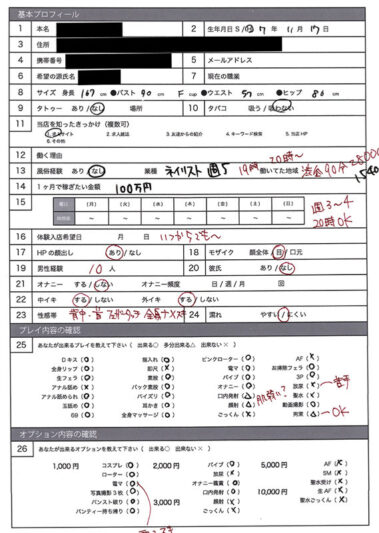 基本プロフィール
1 本名 2 生年月日 S / H 7 年 11 月 17 日
3 住所
4 携帯番号 5 メールアドレス
6 希望の源氏名 7 現在の職業
8 サイズ 身長 167 cm ●バスト 90 cm F cup ●ウエスト 57 cm ●ヒップ 86 cm
9 タトゥー あり / なし 場所 10 タバコ 吸う / 吸わない
11 当店を知ったきっかけ(複数可)
1. 求人サイト 2. 求人雑誌 3. お友達からの紹介 4. キーワード検索 5. 当店HP
6. その他
12 働く理由
13 風俗経験 あり / なし 業種 ネイリスト 週5 19時 20時〜 働いてた地域 渋谷 90分
14 1ヶ月で稼ぎたい金額 100万円
15 曜日 (月) (火) (水) (木) (金) (土) (日)
〜 〜 〜 〜 〜 〜 〜
週3〜4
20時OK
16 体験入店希望日 月 日 いつからでも〜
17 HPの顔出し あり / なし 18 モザイク 顔全体 / 目 / 口元
19 男性経験 10 人 20 彼氏 あり / なし
21 オナニー する / しない オナニー頻度 日 / 週 / 月 回
22 中イキ する / しない 外イキ する / しない
23 性感帯 背中・首 24 濡れ やすい / にくい
プレイ内容の確認
25 あなたが出来るプレイを教えて下さい(出来る○ 多分出来る△ 出来ない×)
Dキス (○) 指入れ (○) ピンクローター (○) AF (×)
全身リップ (○) 即尺 (○) 電マ (○) お掃除フェラ (○)
生フェラ (○) 素股 (○) バイブ (○) 3P (○)
アナル舐め (×) バック素股 (○) オナニー (○) 放尿 (×)
アナル舐められ (○) パイズリ (○) 口内発射 (△) 聖水 (×)
玉舐め (○) 耳かき (○) 顔射 (△) 動画撮影 (○)
69 (○) 全身マッサージ (○) ごっくん (×) 拘束 (△)
肌弱い?
苦手
OK
オプション内容の確認
26 あなたが出来るオプションを教えて下さい(出来る○ 出来ない×)
1,000円 コスプレ (○) 2,000円 バイブ (○) 5,000円 AF (×)
ローター (○) 放尿 (×) SM (×)
電マ (○) オナニー鑑賞 (○) 聖水受け (×)
写真撮影3枚 (○) 口内発射 (○) 10,000円 生AF (×)
パンスト破り (○) 3,000円 顔射 (×) 聖水ごっくん (×)
パンティー持ち帰り (○) ごっくん (×)